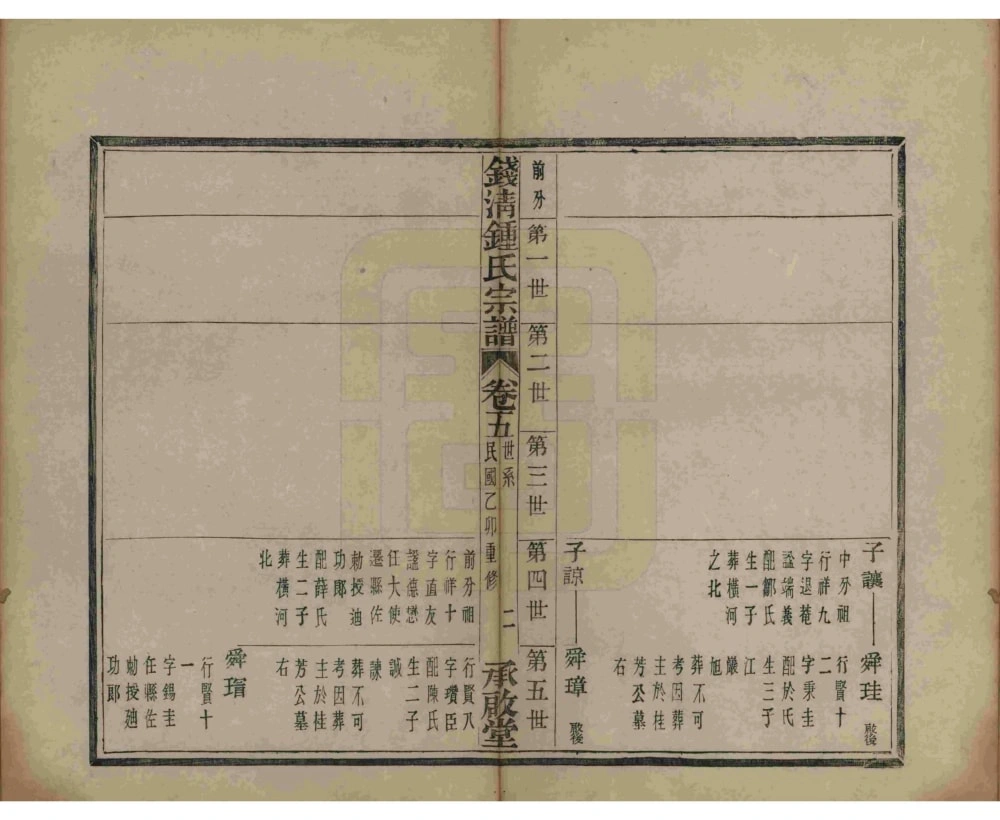 子讓
中分祖
行祥九
字退菴
謚端義
配鄒氏
生一子
葬橫河
之北
舜珪
行賢十
二
字秉圭
配於氏
生三子
江
嚴
旭
葬不可
考因葬
主於桂
芳公墓
右
子諒
舜璋
前分
第一世
第二世
第三世
第四世
第五世
錢清鍾氏宗譜
卷五
世系
民國乙卯重修
二
承啟堂
前分祖
行祥十
字直友
謚德懋
任大使
遷縣佐
勅授迪
功郎
配薛氏
生二子
葬橫河
北
行賢八
字瓚臣
配陳氏
生二子
誠
諫
葬不可
考因葬
主於桂
芳公墓
右
舜瑨
行賢十
一
字錫圭
任縣佐
勅授廸
功郎